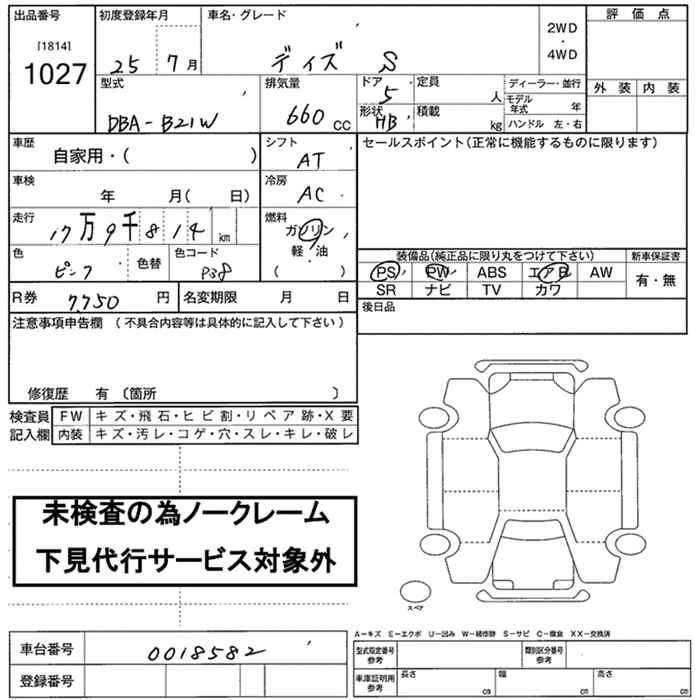 出品番号 初度登録年月 車名・グレード 評価点
[1814]
1027
25 7月 デイズ S
2WD
・
4WD
型式 排気量 ドア 定員 ディーラー・並行 外装 内装
DBA-B21W 660 CC 5 人 モデル年式 年
形状 HB 積載 kg ハンドル 左・右
車歴 自家用・( ) シフト AT セールスポイント(正常に機能するものに限ります)
車検 年 月( 日) 冷房 AC
走行 17万9千814 km 燃料 ガソリン
軽・油
( )
色 ピンク 色替 色コード P38
装備品(純正品に限り丸をつけて下さい) 新車保証書
PS PW ABS エアB AW 有・無
SR ナビ TV カワ
R券 7,750 円 名変期限 月 日 後日品
注意事項申告欄 (不具合内容等は具体的に記入して下さい)
修復歴 有 〔箇所 〕
検査員 FW キズ・飛石・ヒビ割・リペア跡・X要
記入欄 内装 キズ・汚レ・コゲ・穴・スレ・キレ・破レ
未検査の為ノークレーム
下見代行サービス対象外
スペア
A-キズ E-エクボ U-凹み W-補修跡 S-サビ C-腐食 XX-交換済
車台番号 0018582 型式指定番号 参考 類別区分番号 参考
登録番号 車庫証明用 参考 長さ cm 幅 cm 高さ cm